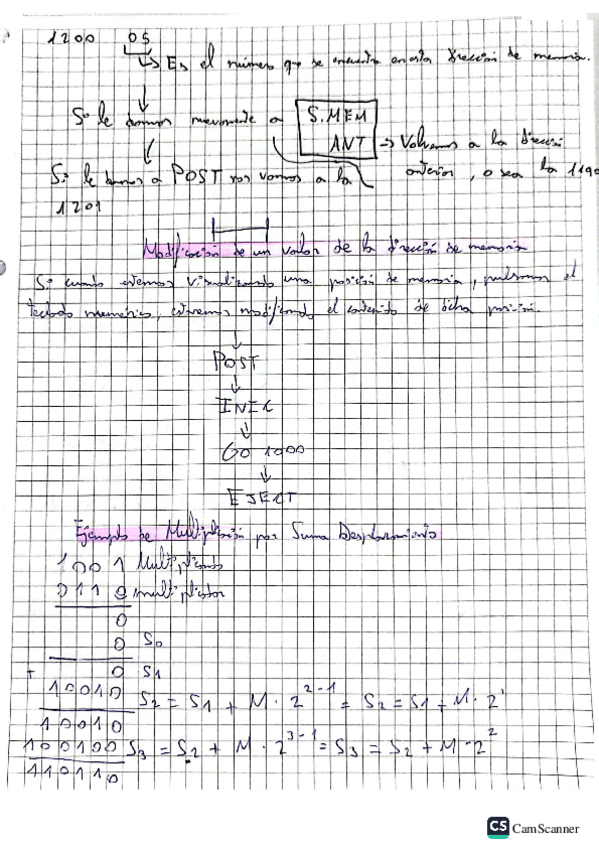 1200 05
↳ Es el número que se encuentra en esta dirección de memoria.
Si le damos nuevamente a S.MEM
ANT → Volvemos a la dirección
anterior, o sea la 1190
Si le damos a POST nos vamos a la
1201
Modificación de un valor de la dirección de memoria
Si cuando estemos visualizando una posición de memoria, pulsamos el
teclado numérico, estaremos modificando el contenido de dicha posición.
↓
POST
↓
INIC
↓
GO 1000
↓
EJECT
Ejemplo de Multiplicación por Suma Desplazamiento
1001 Multiplicando
0110 multiplicador
0
0 S0
+ 0 S1
10010 S2 = S1 + M · 2^2-1 = S2 = S1 + M · 2^1
10010
100100 S3 = S2 + M · 2^3-1 = S3 = S2 + M · 2^2
110110
CS CamScanner